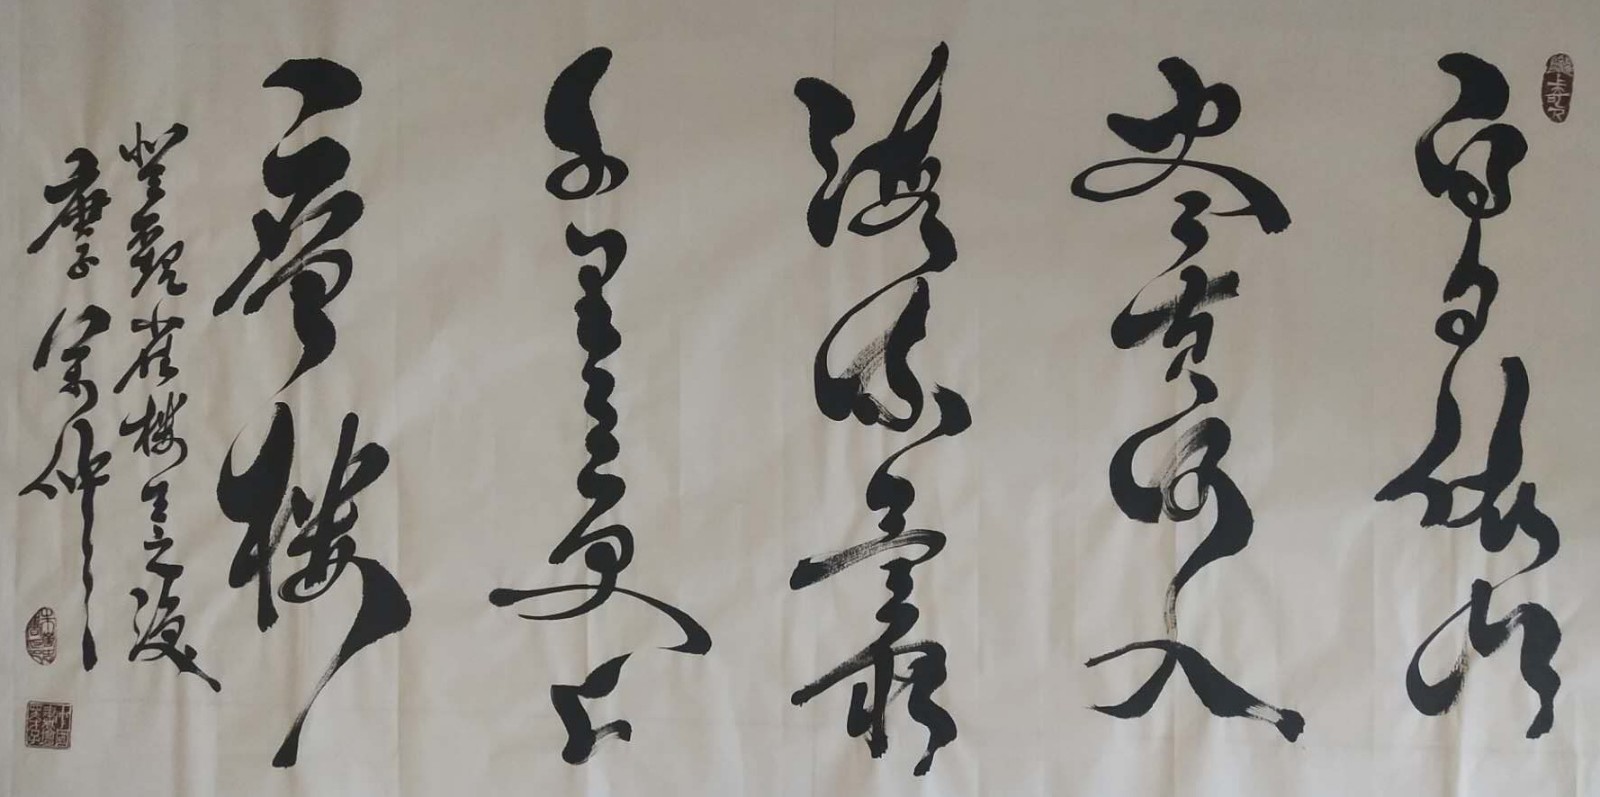 白日依山
尽黄河入
海流欲窮
千里目更上
一層楼
登鸛雀楼王之渙
庚子